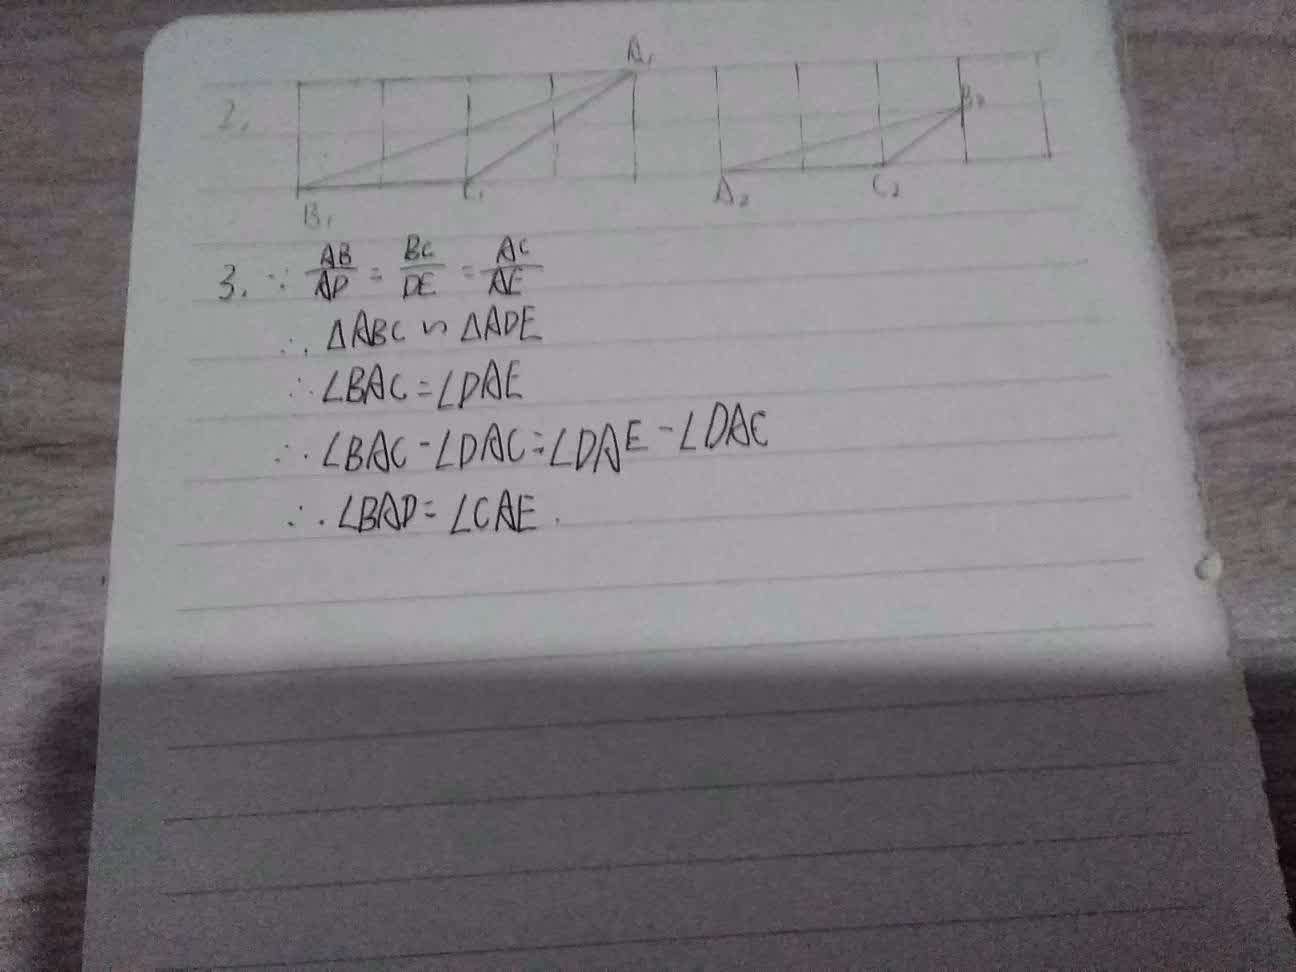 A₁
2.
B₂
B₁
C₁
A₂
C₂
3. ∵ AB/AD = BC/DE = AC/AE
∴ △ABC ∽ △ADE
∴ ∠BAC = ∠DAE
∴ ∠BAC - ∠DAC = ∠DAE - ∠DAC
∴ ∠BAD = ∠CAE.